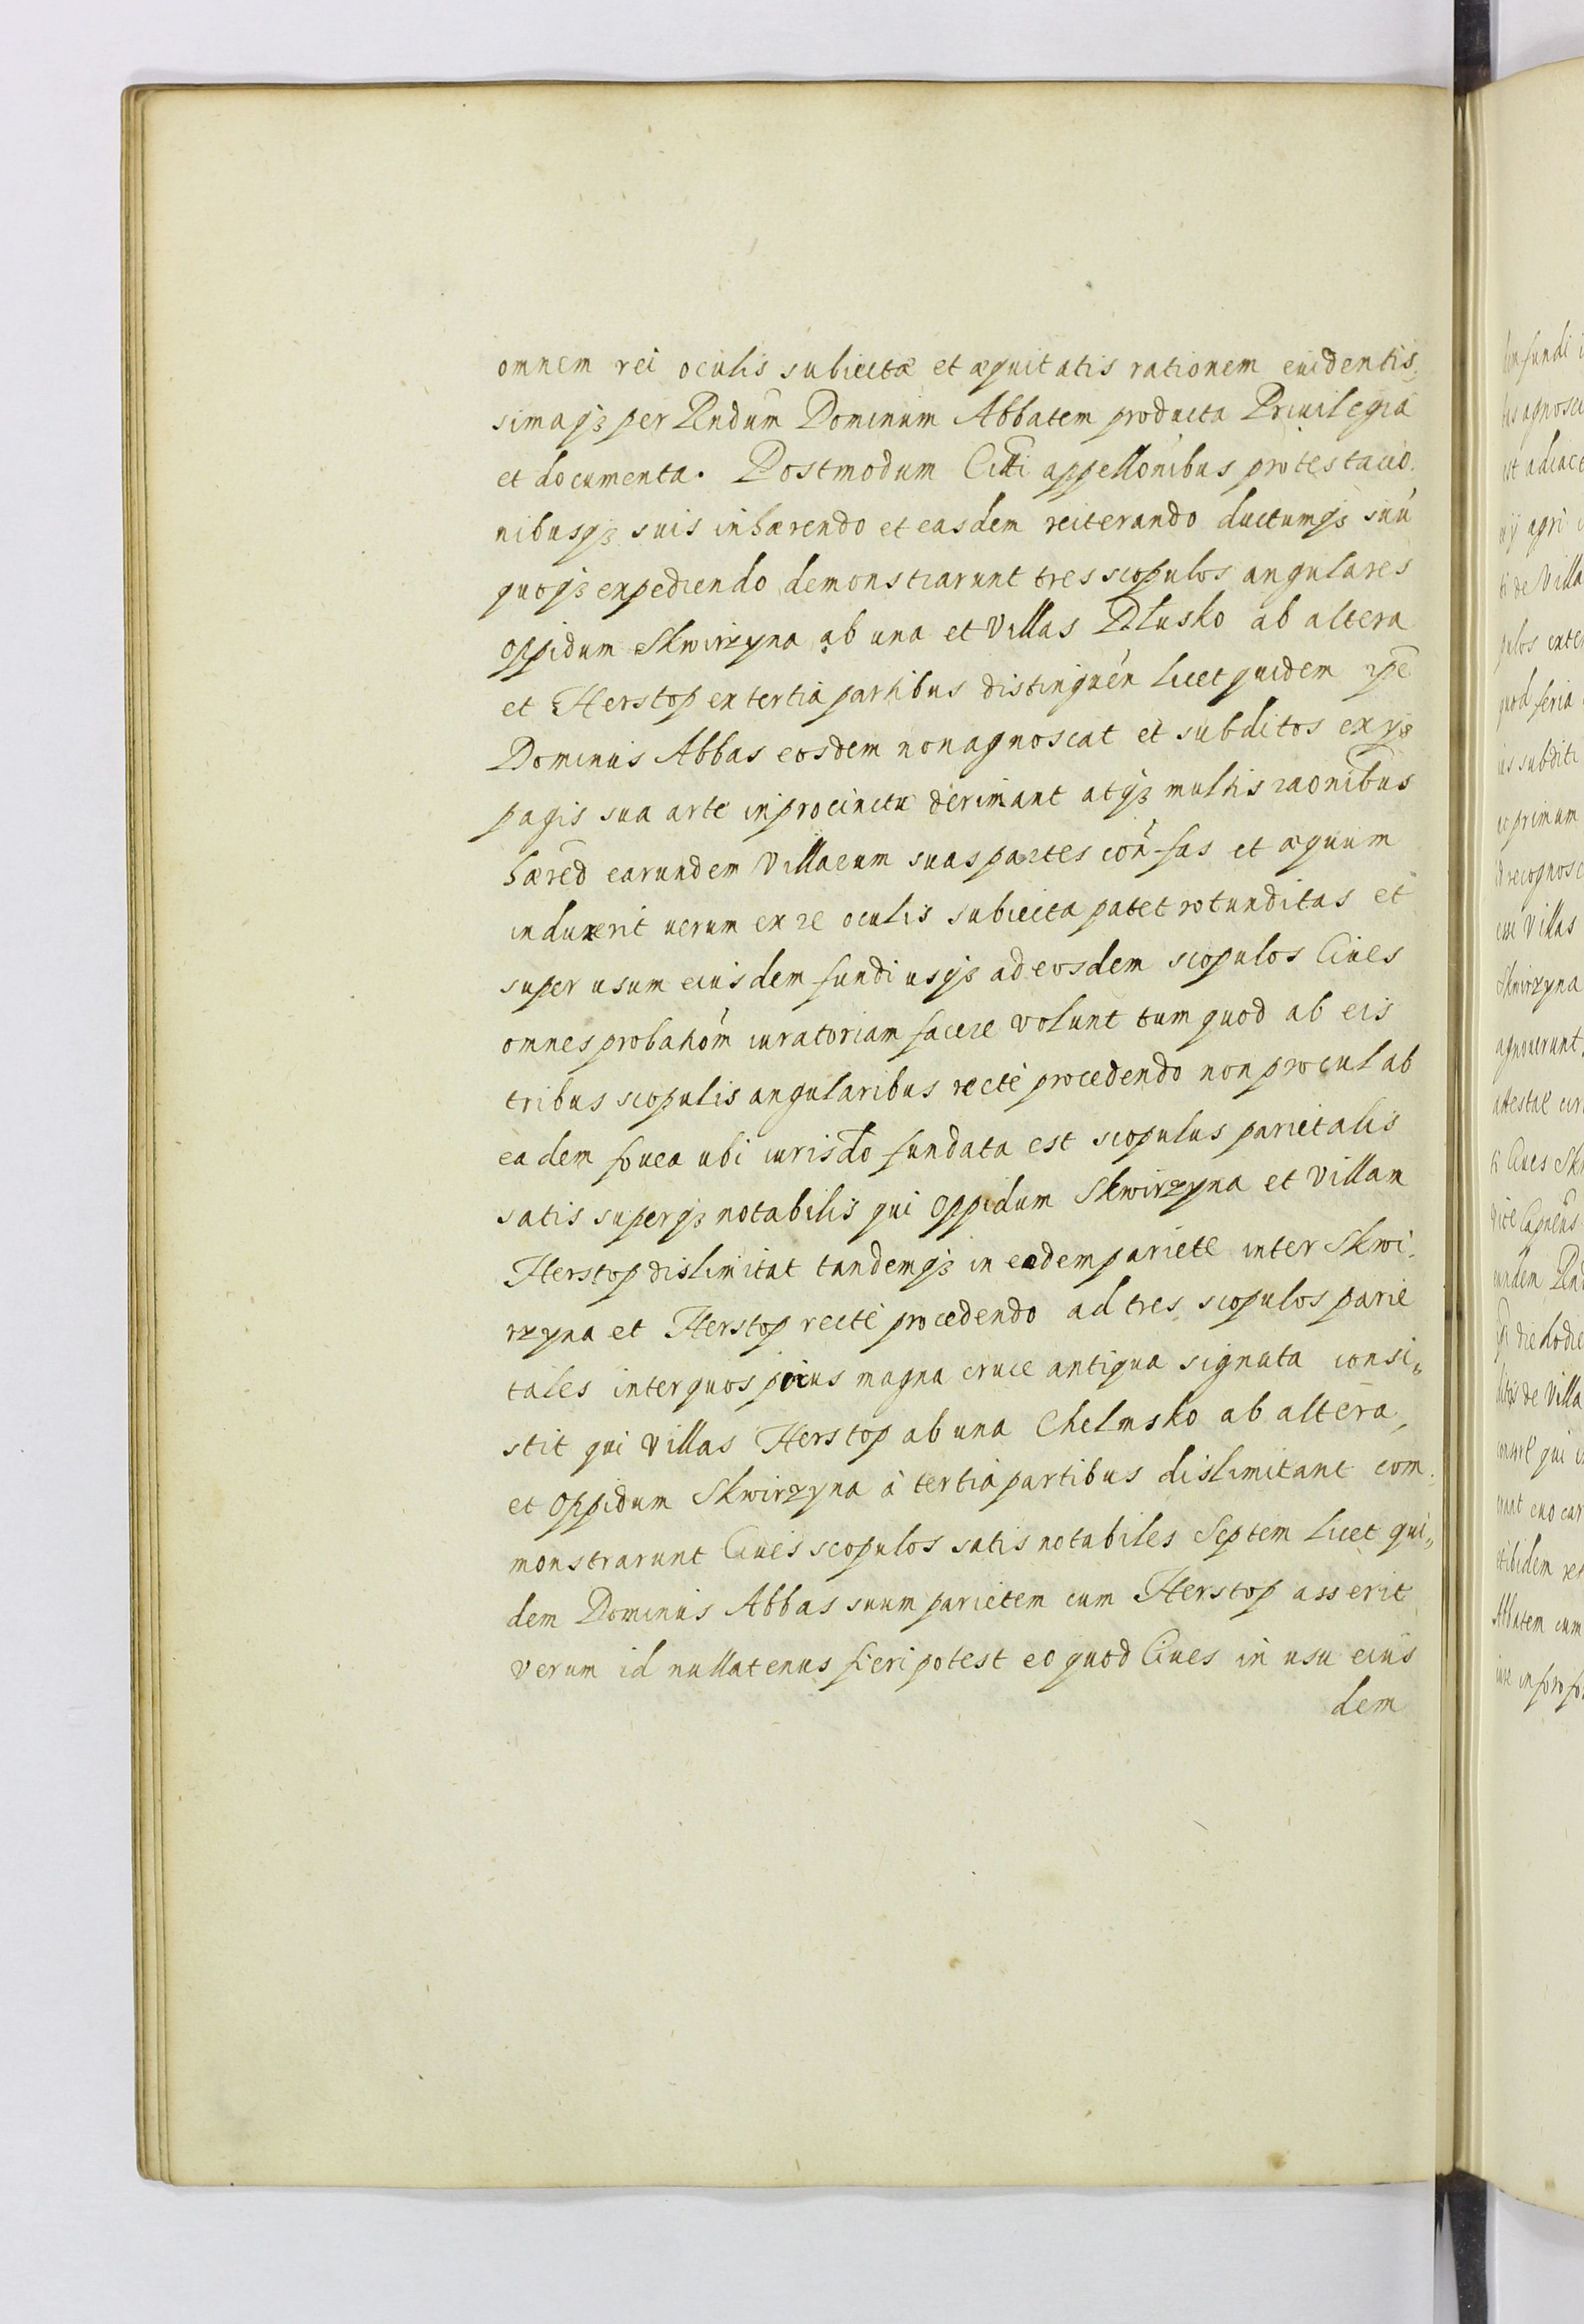 omnem rei oculis subiectæ et æquitatis rationem euidentis,
simaqꝫ per Rndum Dominum Abbatem producta Priuilegia
et documenta. Postmodum Citti appellõnibus protestacio,
nibusqꝫ suis inhærendo et easdem reiterando ductumqꝫ suũ
quoqꝫ expediendo demonstrarunt tres scopulos angulares
oppidum Skwirzyna ab una et Villas Dlusko ab altera
et Herstop ex tertia partibus distinguen̄ licet quidem ipẽ
Dominus Abbas eosdem non agnoscat et subditos ex ijs
pagis sua arte in procinctu derimant atqꝫ multis raonibus
hæred earundem Villarum suas partes con̄ fas et æquum
induxerit uerum ex re oculis subiecta patet rotunditas et
super usum eiusdem fundi usqꝫ ad eosdem scopulos Ciues
omnes probaõm iuratoriam facere volunt tum quod ab eis
tribus scopulis angularibus rectè procedendo non procul ab
eadem fouea ubi iurisdõ fundata est scopulus parietalis
satis superqꝫ notabilis qui Oppidum Skwirzyna et Villam
Herstop dislimitat tandemqꝫ in eadem pariete inter Skwi,
rzyna et Herstop rectè procedendo ad tres scopulos parie
tales inter quos picus magna cruce antiqua signata consi„
stit qui Villas Herstop ab una Chelmsko ab altera,
et Oppidum Skwirzyna à tertia partibus dislimitant com,
monstrarunt Ciues scopulos satis notabiles Septem licet qui„
dem Dominus Abbas suum parietem cum Herstop asserit
verum id nullatenus fieri potest eo quod Ciues in usu eius
dem